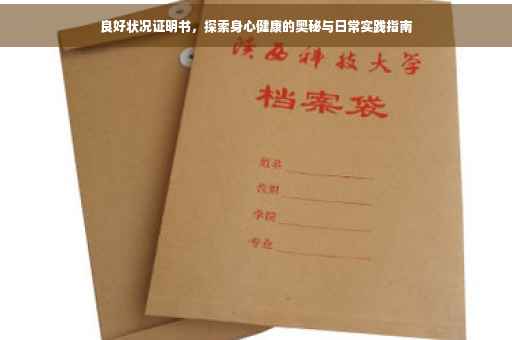 良好状况证明书，探索身心健康的奥秘与日常实践指南
陕西科技大学
档案袋
姓名
类别
学院
专业